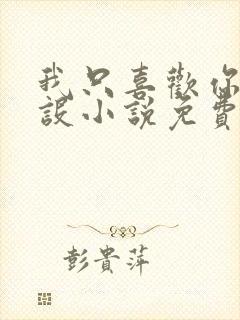 我只喜歡你
設小說免費
彭貴萍